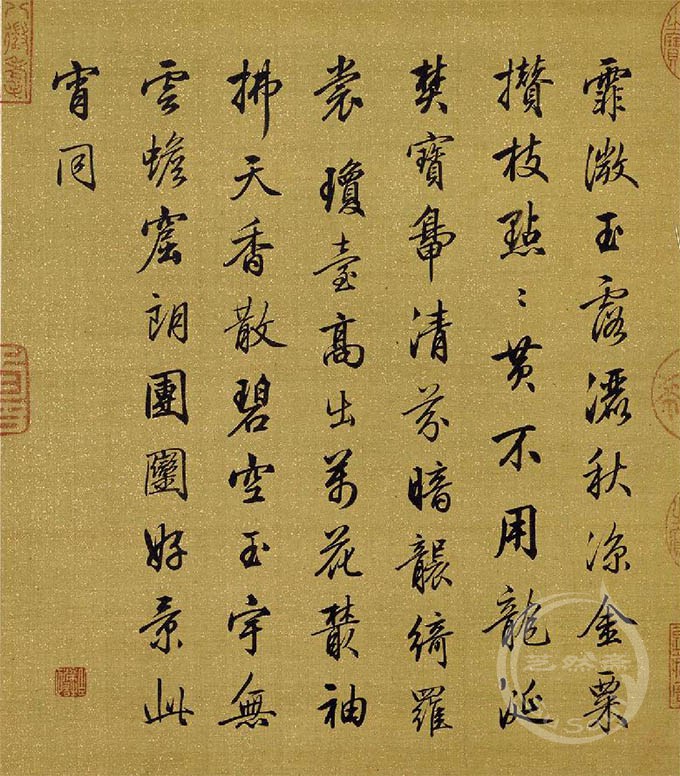 霏微玉露灑秋凉金粟
攢枝點〻黃不用龍涎
焚寶鼎清芬暗襲綺羅
裳瓊臺高出萬花叢袖
拂天香散碧空玉宇無
雲蟾窟朗團圞好景此
宵同